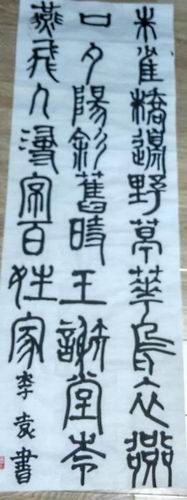 朱雀橋邊野草華烏衣巷
口夕陽斜舊時王謝堂前
燕飛入尋常百姓家
李袁書